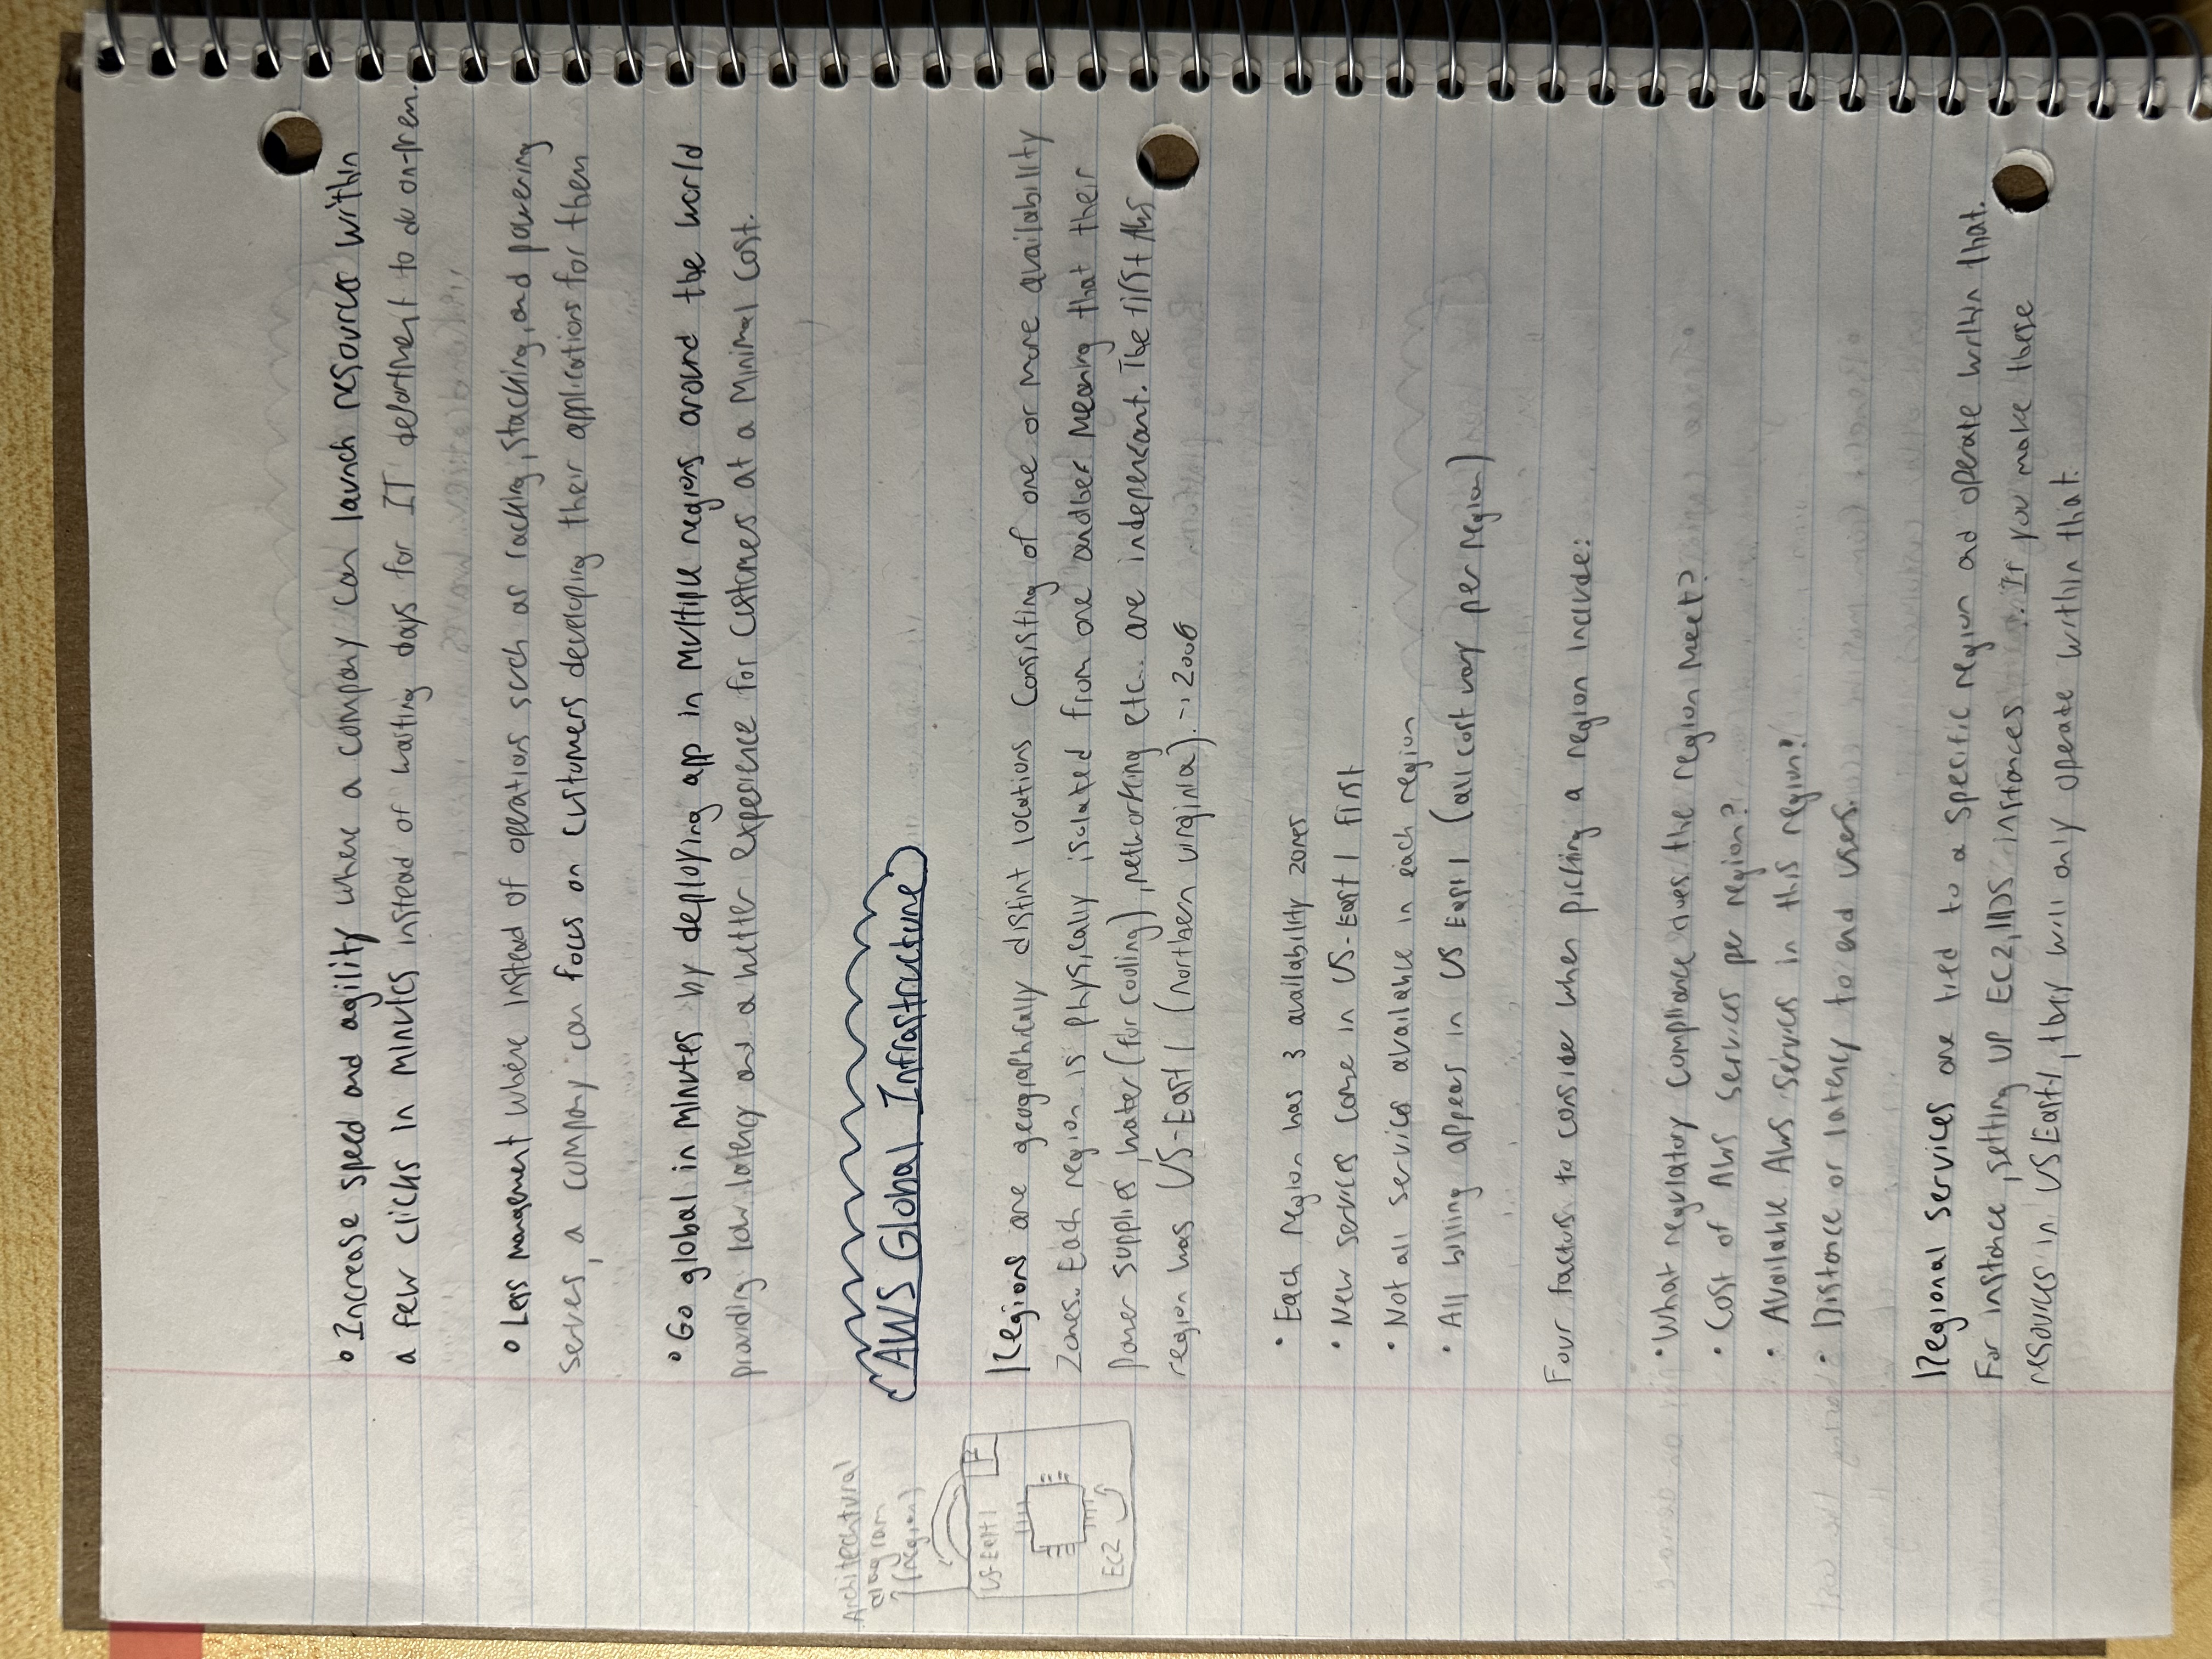 ° Increase speed and agility where a company can launch resources within
a few clicks in minutes instead of waiting days for IT department to do on-prem.
° Less management where instead of operations such as racking, stacking, and powering
serves, a company can focus on customers developing their applications for them
° Go global in minutes by deploying app in multiple regions around the world
providing low latency and a better experience for customers at a minimal cost.
Architechtural
diagram
(region)
US-East 1
F
EC2
AWS Global Infrastructure
Regions are geographically distint locations consisting of one or more availability
zones. Each region is physically isolated from one another meaning that their
power supplies, water (for cooling), networking etc.. are independant. The first AWS
region was US-East 1 (northern virginia). → 2006
• Each region has 3 availability zones
• New services come in US-East 1 first
• Not all services available in each region
• All billing appears in US East 1 (all cost vary per region)
Four factors to consider when picking a region include:
• What regulatory compliance does the region meet?
• Cost of AWS services per region?
• Available AWS services in this region?
• Distance or latency to end users.
Regional services are tied to a specific region and operate within that.
For instance, setting up EC2, RDS instances .. If you make these
resources in US East-1, they will only operate within that.